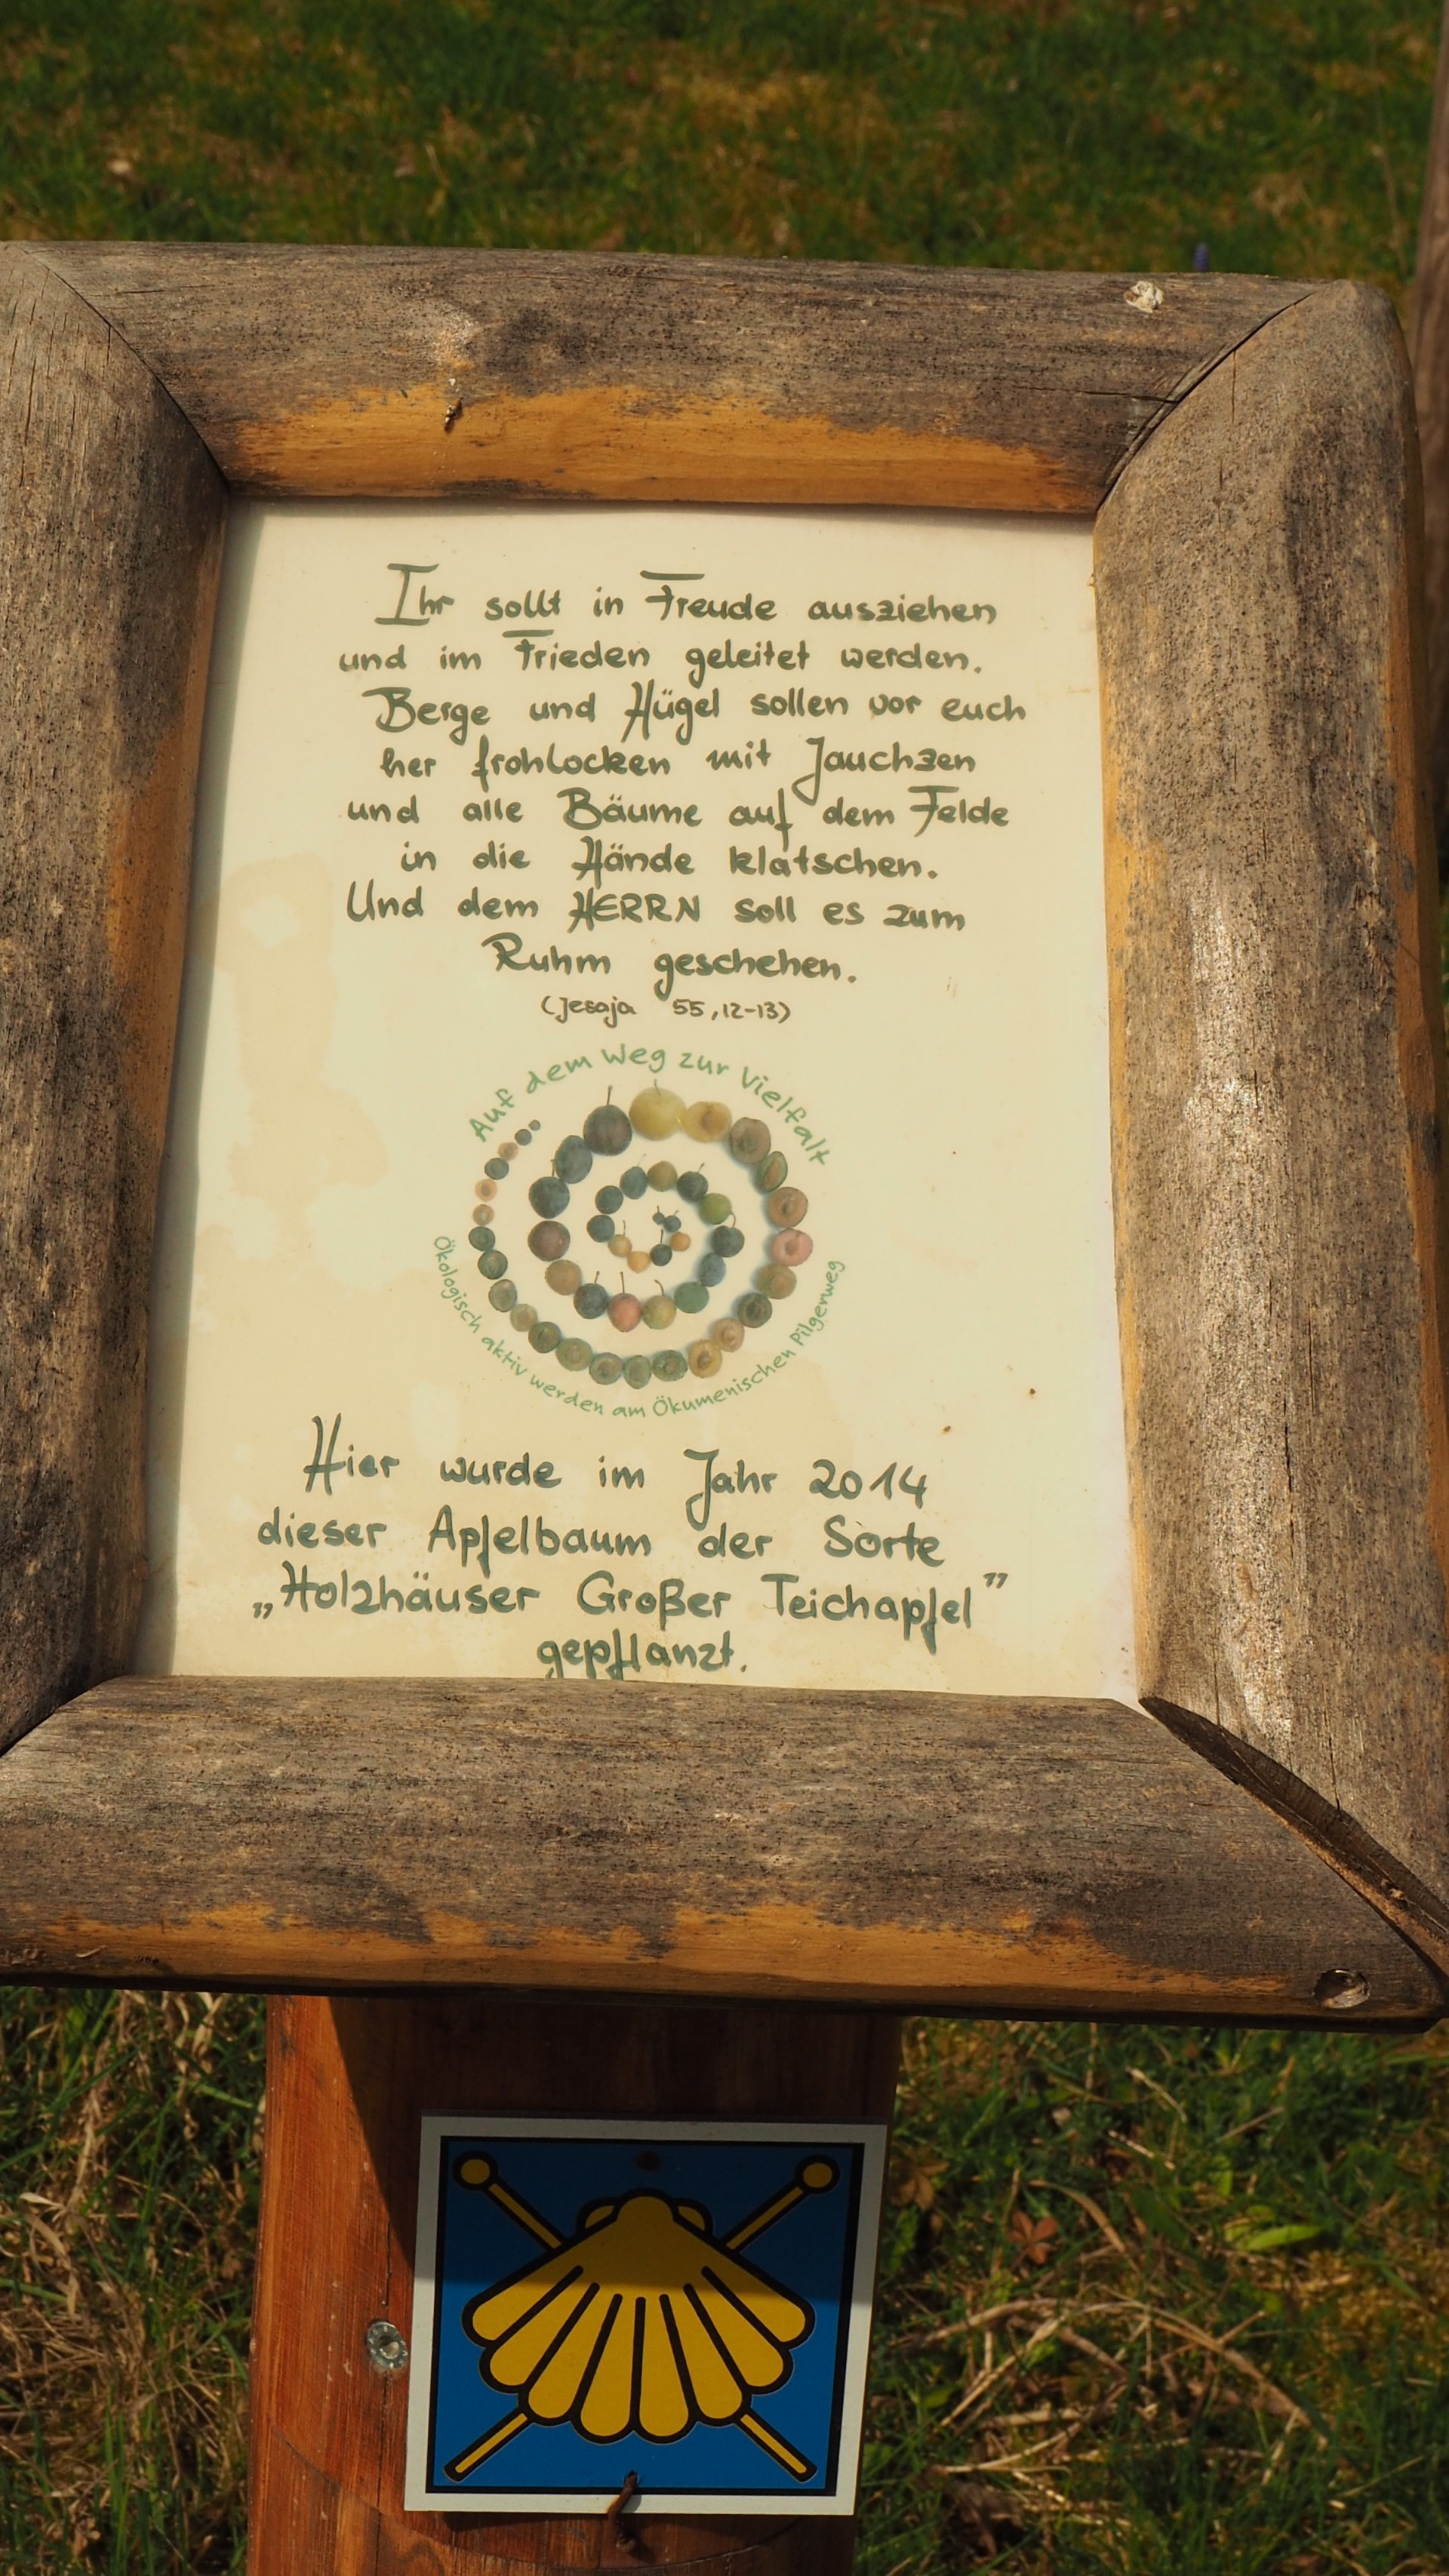 Ihr sollt in Freude ausziehen
und im Frieden geleitet werden.
Berge und Hügel sollen vor euch
her frohlocken mit Jauchzen
und alle Bäume auf dem Felde
in die Hände klatschen.
Und dem HERRN soll es zum
Ruhm geschehen.
(Jesaja 55,12-13)
Auf dem Weg zur Vielfalt
Ökologisch aktiv werden am Ökumenischen Pilgerweg
Hier wurde im Jahr 2014
dieser Apfelbaum der Sorte
„Holzhäuser Großer Teichapfel”
gepflanzt.